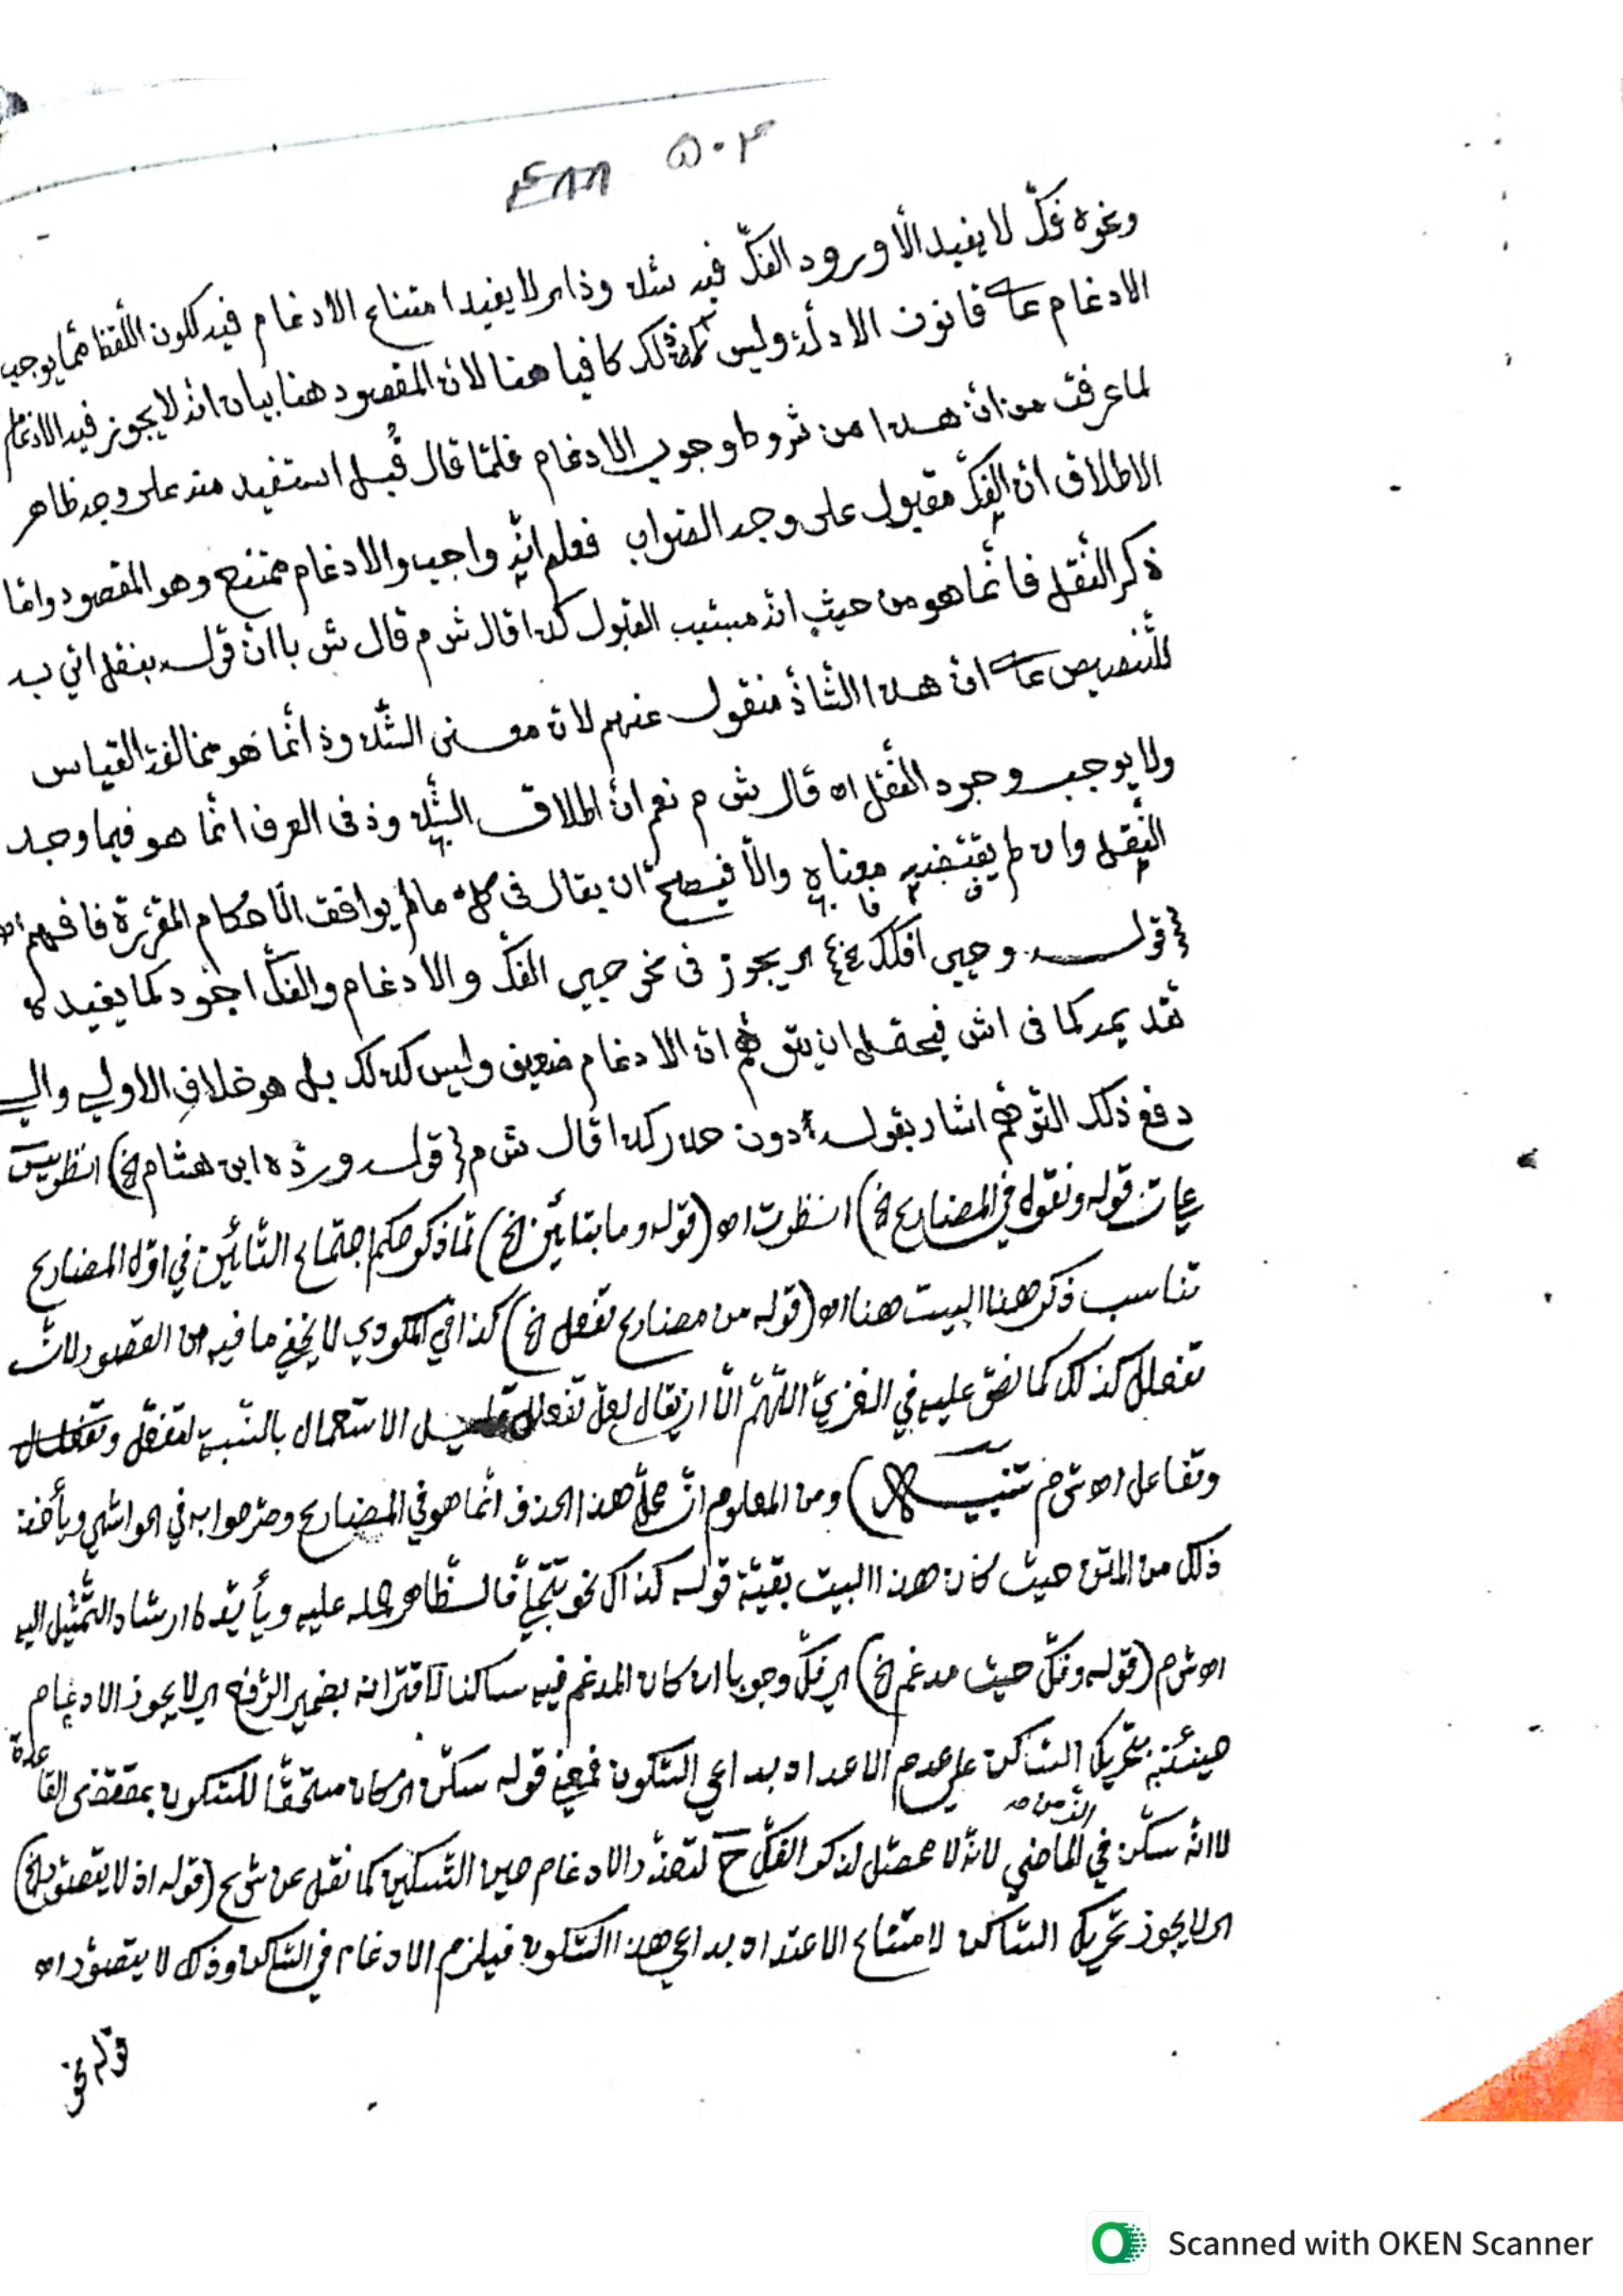 ٥٠٣ ٤٨٨
ونحوه فكّ لا يفيد الّا ورود الفكّ فيه شذوذا لا يفيد امتناع الادغام فيه لكون اللّفظ ممّا يوجب
الادغام على قانون الادلّة وليس ذلك كافيا هنا لانّ المقصود هنا بيان انّه لا يجوز فيه الادغام
لما عرفت من انّ هذا من شروط وجوب الادغام فلمّا قال قُبل استفيد منه على وجه ظاهر
الاطلاق انّ الفكّ مقبول على وجه الصّواب فعلم انّه واجب والادغام ممتنع وهو المقصود وامّا
ذكر النّقل فانّما هو من حيث انّه مسبّب القبول كذا قال ش م قال ش با انّ قوله بنقل اتي به
للتّنصيص على انّ هذا الشّاذّ منقول عنهم لانّ معنى الشّذوذ انّما هو مخالفة القياس
ولا يوجب وجود النّقل اه قال ش م نعم انّ اطلاق الشّذوذ في العرف انّما هو فيما وجد
النّقل وان لم يقتضيه معناه والّا فيصحّ ان يقال في كلّ ما لم يوافق الاحكام المقرّرة فافهم اه
قوله وحيي افكك اي يجوز في نحو حيي الفكّ والادغام والفكّ اجود كما يفيده
تقديمه كما في اش فيحتمل ان يتوهّم انّ الادغام ضعيف وليس كذلك بل هو خلاف الاولى والى
دفع ذلك التّوهّم اشار بقوله دون حذر كذا قال ش م (قوله وردّه ابن هشام الخ) انظر يس
(قوله ونقول في المضارع الخ) انظرت اه (قوله وما بتائين الخ) لمّا ذكر حكم اجتماع التّائين في اوّل المضارع
تناسب ذكر هذا البيت هنا اه (قوله من مضارع تفعل الخ) كذا في المكودي لا يخفى ما فيه من القصور لانّ
تفعلل كذلك كما نصّ عليه في الغزيّ اللّهمّ الّا ان يقال لعلّ تفعلل قليل الاستعمال بالنّسبة لتفعّل
وتفاعل اه ش م (تنبيه) ومن المعلوم انّ محلّ هذا الحذف انّما هو في المضارع وصرّحوا به في الحواشي ويأخذ
ذلك من المتن حيث كان هذا البيت بقيّة قوله كذاك نحو تتجلّى فالظّاهر حمله عليه ويأيّده ارشاد التّمثيل اليه
اه ش م (قوله وفكّ حيث مدغم الخ) اي فكّ وجوبا ان كان المدغم فيه ساكنا لاقترانه بضمير الرّفع اي لا يجوز الادغام
حينئذ بتحريك السّاكن على عدم الاعتداد بداعي السّكون فمعنى قوله سكّن اي كان مستحقّا للسّكون بمقتضى القاعدة
لا انّه سكّن في الماضي لانّه لا محصّل لذكر الفكّ ح لتعذّر الادغام حين التّسكين كما نقل عن شرح (قوله اذ لا يتصوّر الخ)
اي لا يجوز تحريك السّاكن لامتناع الاعتداد بداعي هذا السّكون فيلزم الادغام في السّاكن وذلك لا يتصوّر اه
قوله نحو
Scanned with OKEN Scanner